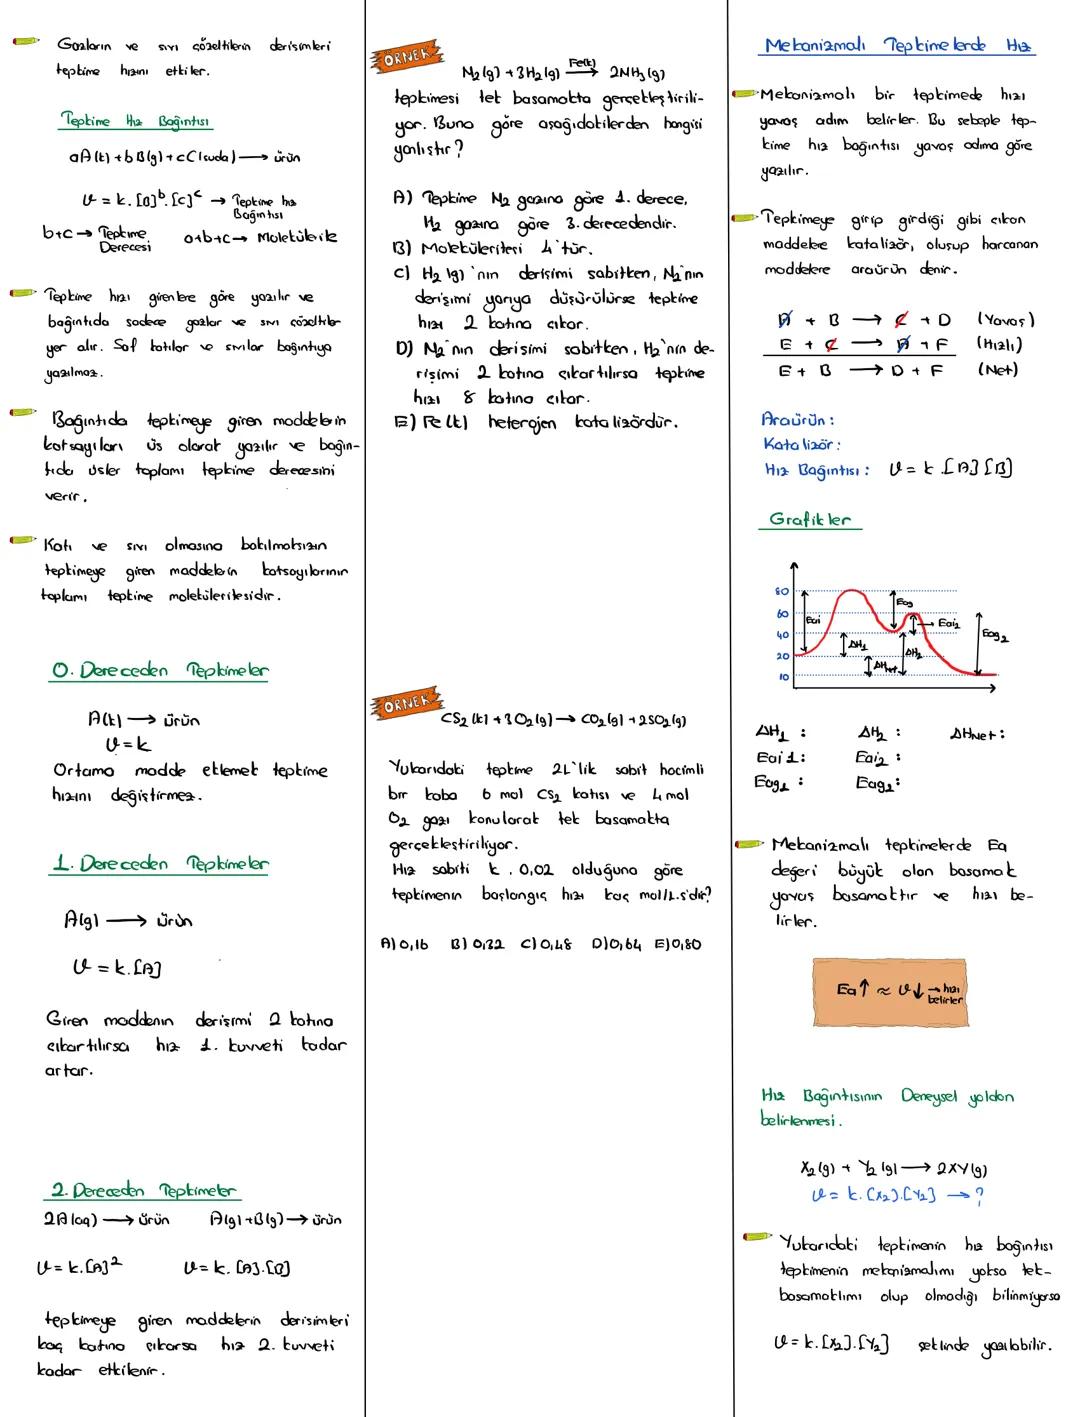 Gazların ve sıvı çözeltilerin derişimleri
tepkime hızını etkiler.
Tepkime Hız Bağıntısı
aA(k) + bB(g) + cC(suda) → ürün
υ = k. [B]ᵇ. [C]ᶜ → Tepkime hız
Bağıntısı
b+c → Tepkime
Derecesi
a+b+c → Molekülerite
Tepkime hızı girenlere göre yazılır ve
bağıntıda sadece gazlar ve sıvı çözeltiler
yer alır. Saf katılar ve sıvılar bağıntıya
yazılmaz.
Bağıntıda tepkimeye giren maddelerin
katsayıları üs olarak yazılır ve bağın-
tıda üsler toplamı tepkime derecesini
verir.
Katı ve sıvı olmasına bakılmaksızın
tepkimeye giren maddelerin katsayılarının
toplamı tepkime molekülerilesidir.
0. Dereceden Tepkimeler
A(k) → ürün
υ = k
Ortama madde eklemek tepkime
hızını değiştirmez.
1. Dereceden Tepkimeler
A(g) → ürün
υ = k.[A]
Giren maddenin derişimi 2 katına
çıkartılırsa hız 1. kuvveti kadar
artar.
2. Dereceden Tepkimeler
2A(aq) → ürün A(g)+B(g) → ürün
υ = k.[A]² υ = k. [A].[B]
tepkimeye giren maddelerin derisimleri
kaç katına çıkarsa hız 2. kuvveti
kadar etkilenir.
ÖRNEK
N₂(g) + 3H₂(g) Fe(k)→ 2NH₃(g)
tepkimesi tek basamakta gerçekleştirili-
yor. Buna göre aşağıdakilerden hangisi
yanlıştır?
A) Tepkime N₂ gazına göre 1. derece,
H₂ gazına göre 3. derecedendir.
B) Moleküleritesi 4'tür.
C) H₂(g)'nın derişimi sabitken, N₂'nın
derişimi yarıya düşürülürse tepkime
hızı 2 katına çıkar.
D) N₂'nın derisimi sabitken, H₂'nin de-
rişimi 2 katına çıkartılırsa tepkime
hızı 8 katına çıkar.
E) Fe(k) heterojen katalizördür.
ÖRNEK
CS₂(k) + 3O₂(g) → CO₂(g) + 2SO₂(g)
Yukarıdaki tepkime 2L'lik sabit hacimli
bir kaba 6 mol CS₂ katısı ve 4 mol
O₂ gazı konularak tek basamakta
gerçekleştiriliyor.
Hız sabiti k . 0,02 olduğuna göre
tepkimenin başlangıç hızı kaç mol/L.s'dir?
A) 0,16 B) 0,32 C) 0,48 D) 0,64 E) 0,80
Mekanizmalı Tepkimelerde Hız
Mekanizmalı bir tepkimede hızı
yavaş adım belirler. Bu sebeple tep-
kime hız bağıntısı yavaş adıma göre
yazılır.
Tepkimeye girip girdiği gibi çıkan
maddelere katalizör, oluşup harcanan
maddelere araürün denir.
A + B → C + D (Yavaş)
E + C → A + F (Hızlı)
E + B → D + F (Net)
Araürün :
Katalizör :
Hız Bağıntısı : υ = k .[A][B]
Grafikler
80
60
40
20
10
Eai
Eag
Eai₂
Eag₂
ΔH₁
ΔH₂
ΔHnet
ΔH₁ : ΔH₂ : ΔHNet :
Eai1: Eai₂ :
Eag₁ : Eag₂:
Mekanizmalı tepkimelerde Ea
değeri büyük olan basamak
yavaş basamaktır ve hızı be-
lirler.
Ea↑ ≈ υ↓ → hızı
belirler
Hız Bağıntısının Deneysel yoldan
belirlenmesi.
X₂(g) + Y₂(g) → 2XY(g)
υ = k.[X₂].[Y₂] → ?
Yukarıdaki tepkimenin hız bağıntısı
tepkimenin mekanizmalımı yoksa tek-
basamaklımı olup olmadığı bilinmiyorsa
υ = k.[X₂].[Y₂] şeklinde yazılabilir.